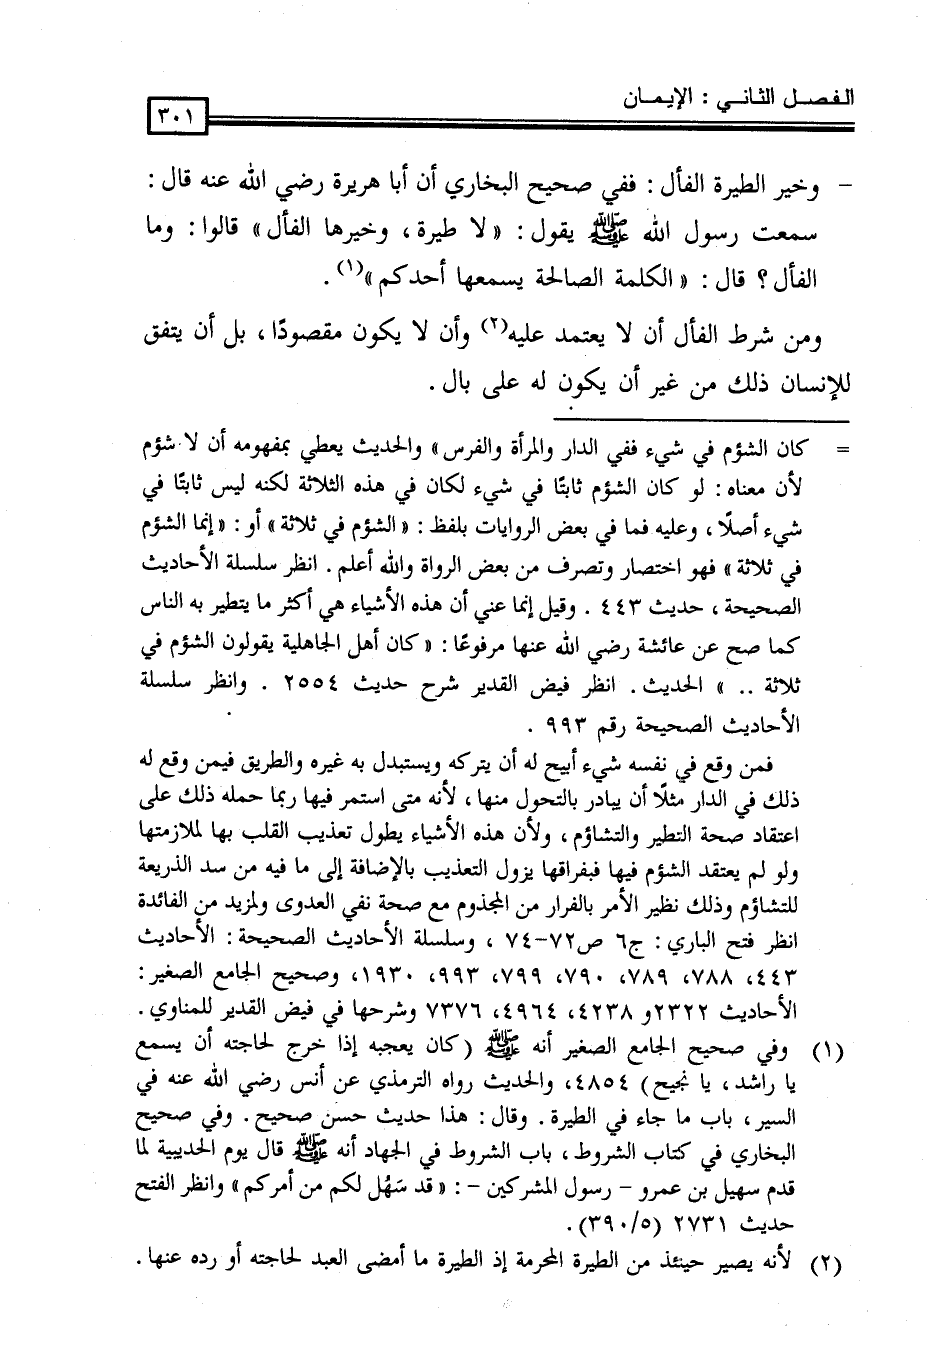 الفصل الثاني : الإيمان
٣٠١
- وخير الطيرة الفأل : ففي صحيح البخاري أن أبا هريرة رضي الله عنه قال :
سمعت رسول الله ﷺ يقول : « لا طيرة ، وخيرها الفأل » قالوا : وما
الفأل ؟ قال : « الكلمة الصالحة يسمعها أحدكم »(١) .
ومن شرط الفأل أن لا يعتمد عليه(٢) وأن لا يكون مقصودًا ، بل أن يتفق
للإنسان ذلك من غير أن يكون له على بال .
= كان الشؤم في شيء ففي الدار والمرأة والفرس » والحديث يعطي بمفهومه أن لا شؤم
لأن معناه : لو كان الشؤم ثابتًا في شيء لكان في هذه الثلاثة لكنه ليس ثابتًا في
شيء أصلًا ، وعليه فما في بعض الروايات بلفظ : « الشؤم في ثلاثة » أو : « إنما الشؤم
في ثلاثة » فهو اختصار وتصرف من بعض الرواة والله أعلم . انظر سلسلة الأحاديث
الصحيحة ، حديث ٤٤٣ . وقيل إنما عني أن هذه الأشياء هي أكثر ما يتطير به الناس
كما صح عن عائشة رضي الله عنها مرفوعًا : « كان أهل الجاهلية يقولون الشؤم في
ثلاثة .. » الحديث . انظر فيض القدير شرح حديث ٢٥٥٤ . وانظر سلسلة
الأحاديث الصحيحة رقم ٩٩٣ .
فمن وقع في نفسه شيء أبيح له أن يتركه ويستبدل به غيره والطريق فيمن وقع له
ذلك في الدار مثلًا أن يبادر بالتحول منها ، لأنه متى استمر فيها ربما حمله ذلك على
اعتقاد صحة التطير والتشاؤم ، ولأن هذه الأشياء يطول تعذيب القلب بها لملازمتها
ولو لم يعتقد الشؤم فيها فبفراقها يزول التعذيب بالإضافة إلى ما فيه من سد الذريعة
للتشاؤم وذلك نظير الأمر بالفرار من المجذوم مع صحة نفي العدوى ولمزيد من الفائدة
انظر فتح الباري : ج٦ ص٧٢-٧٤ ، وسلسلة الأحاديث الصحيحة : الأحاديث
٤٤٣، ٧٨٨، ٧٨٩، ٧٩٠، ٧٩٩، ٩٩٣، ١٩٣٠، وصحيح الجامع الصغير :
الأحاديث ٢٣٢٢و ٤٢٣٨، ٤٩٦٤، ٧٣٧٦ وشرحها في فيض القدير للمناوي .
(١) وفي صحيح الجامع الصغير أنه ﷺ (كان يعجبه إذا خرج لحاجته أن يسمع
يا راشد ، يا نجيح) ٤٨٥٤، والحديث رواه الترمذي عن أنس رضي الله عنه في
السير ، باب ما جاء في الطيرة . وقال : هذا حديث حسن صحيح . وفي صحيح
البخاري في كتاب الشروط ، باب الشروط في الجهاد أنه ﷺ قال يوم الحديبية لما
قدم سهيل بن عمرو - رسول المشركين - : « قد سَهُل لكم من أمركم » وانظر الفتح
حديث ٢٧٣١ (٣٩٠/٥) .
(٢) لأنه يصير حينئذ من الطيرة المحرمة إذ الطيرة ما أمضى العبد لحاجته أو رده عنها .